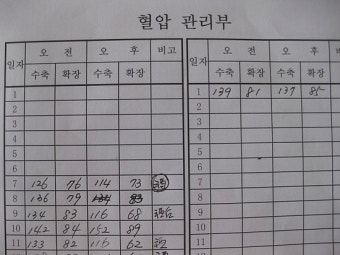 혈압 관리부
일자 오전 오후 비고
수축 확장 수축 확장
1
2
3
4
5
6
7 126 76 114 73
8 136 79
9 134 83 116 68
10 142 84 152 89
11 133 82 62
일자 오전 오후
수축 확장 수축 확장
1 139 81 137 85
2
3
4
5
6
7
8
9
10
11